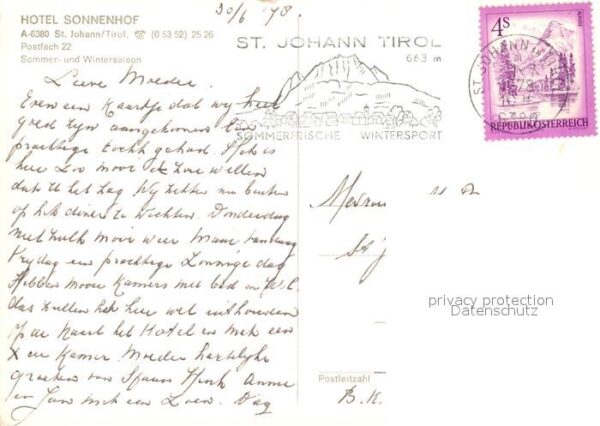 30/6 '78.
HOTEL SONNENHOF
A-6380 St. Johann/Tirol, ☎ (0 53 52) 25 26
Postfach 22
Sommer- und Wintersaison
ST. JOHANN TIROL
663 m
SOMMERFRISCHE WINTERSPORT
4S
ALMSEE
REPUBLIK ÖSTERREICH
ST. JOHANN
Lieve Moeder.
Even een kaartje dat wij heel
goed zijn aangekomen een
prachtige tocht gehad
hier zoo mooi
dat U het zag Wij zitten nu buiten
op het diner te wachten. Donderdag
niet zulk mooi weer maar vandaag
Vrijdag een prachtige zonnige dag
Hebben mooie kamers met bad en W.C.
dus zullen het hier wel uithouden
op de kaart het Hotel en met een
x de kamer Moeder hartelijke
groeten van Annie
en Jan met een zoen. Dag
Mevrouw
St J
privacy protection
Datenschutz
Postleitzahl
B.K.